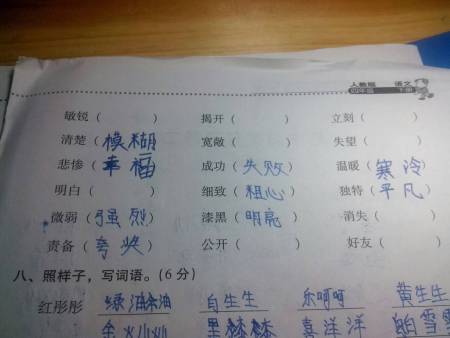 人教版 语文
四年级 下册
敏锐( ) 揭开( ) 立刻( )
清楚(模糊) 宽敞( ) 失望( )
悲惨(幸福) 成功(失败) 温暖(寒冷)
明白( ) 细致(粗心) 独特(平凡)
微弱(强烈) 漆黑(明亮) 消失( )
责备(夸奖) 公开( ) 好友( )
八、照样子,写词语。(6分)
红彤彤 绿油油 白生生 乐呵呵 黄生生
金火火 黑漆漆 喜洋洋 白雪雪